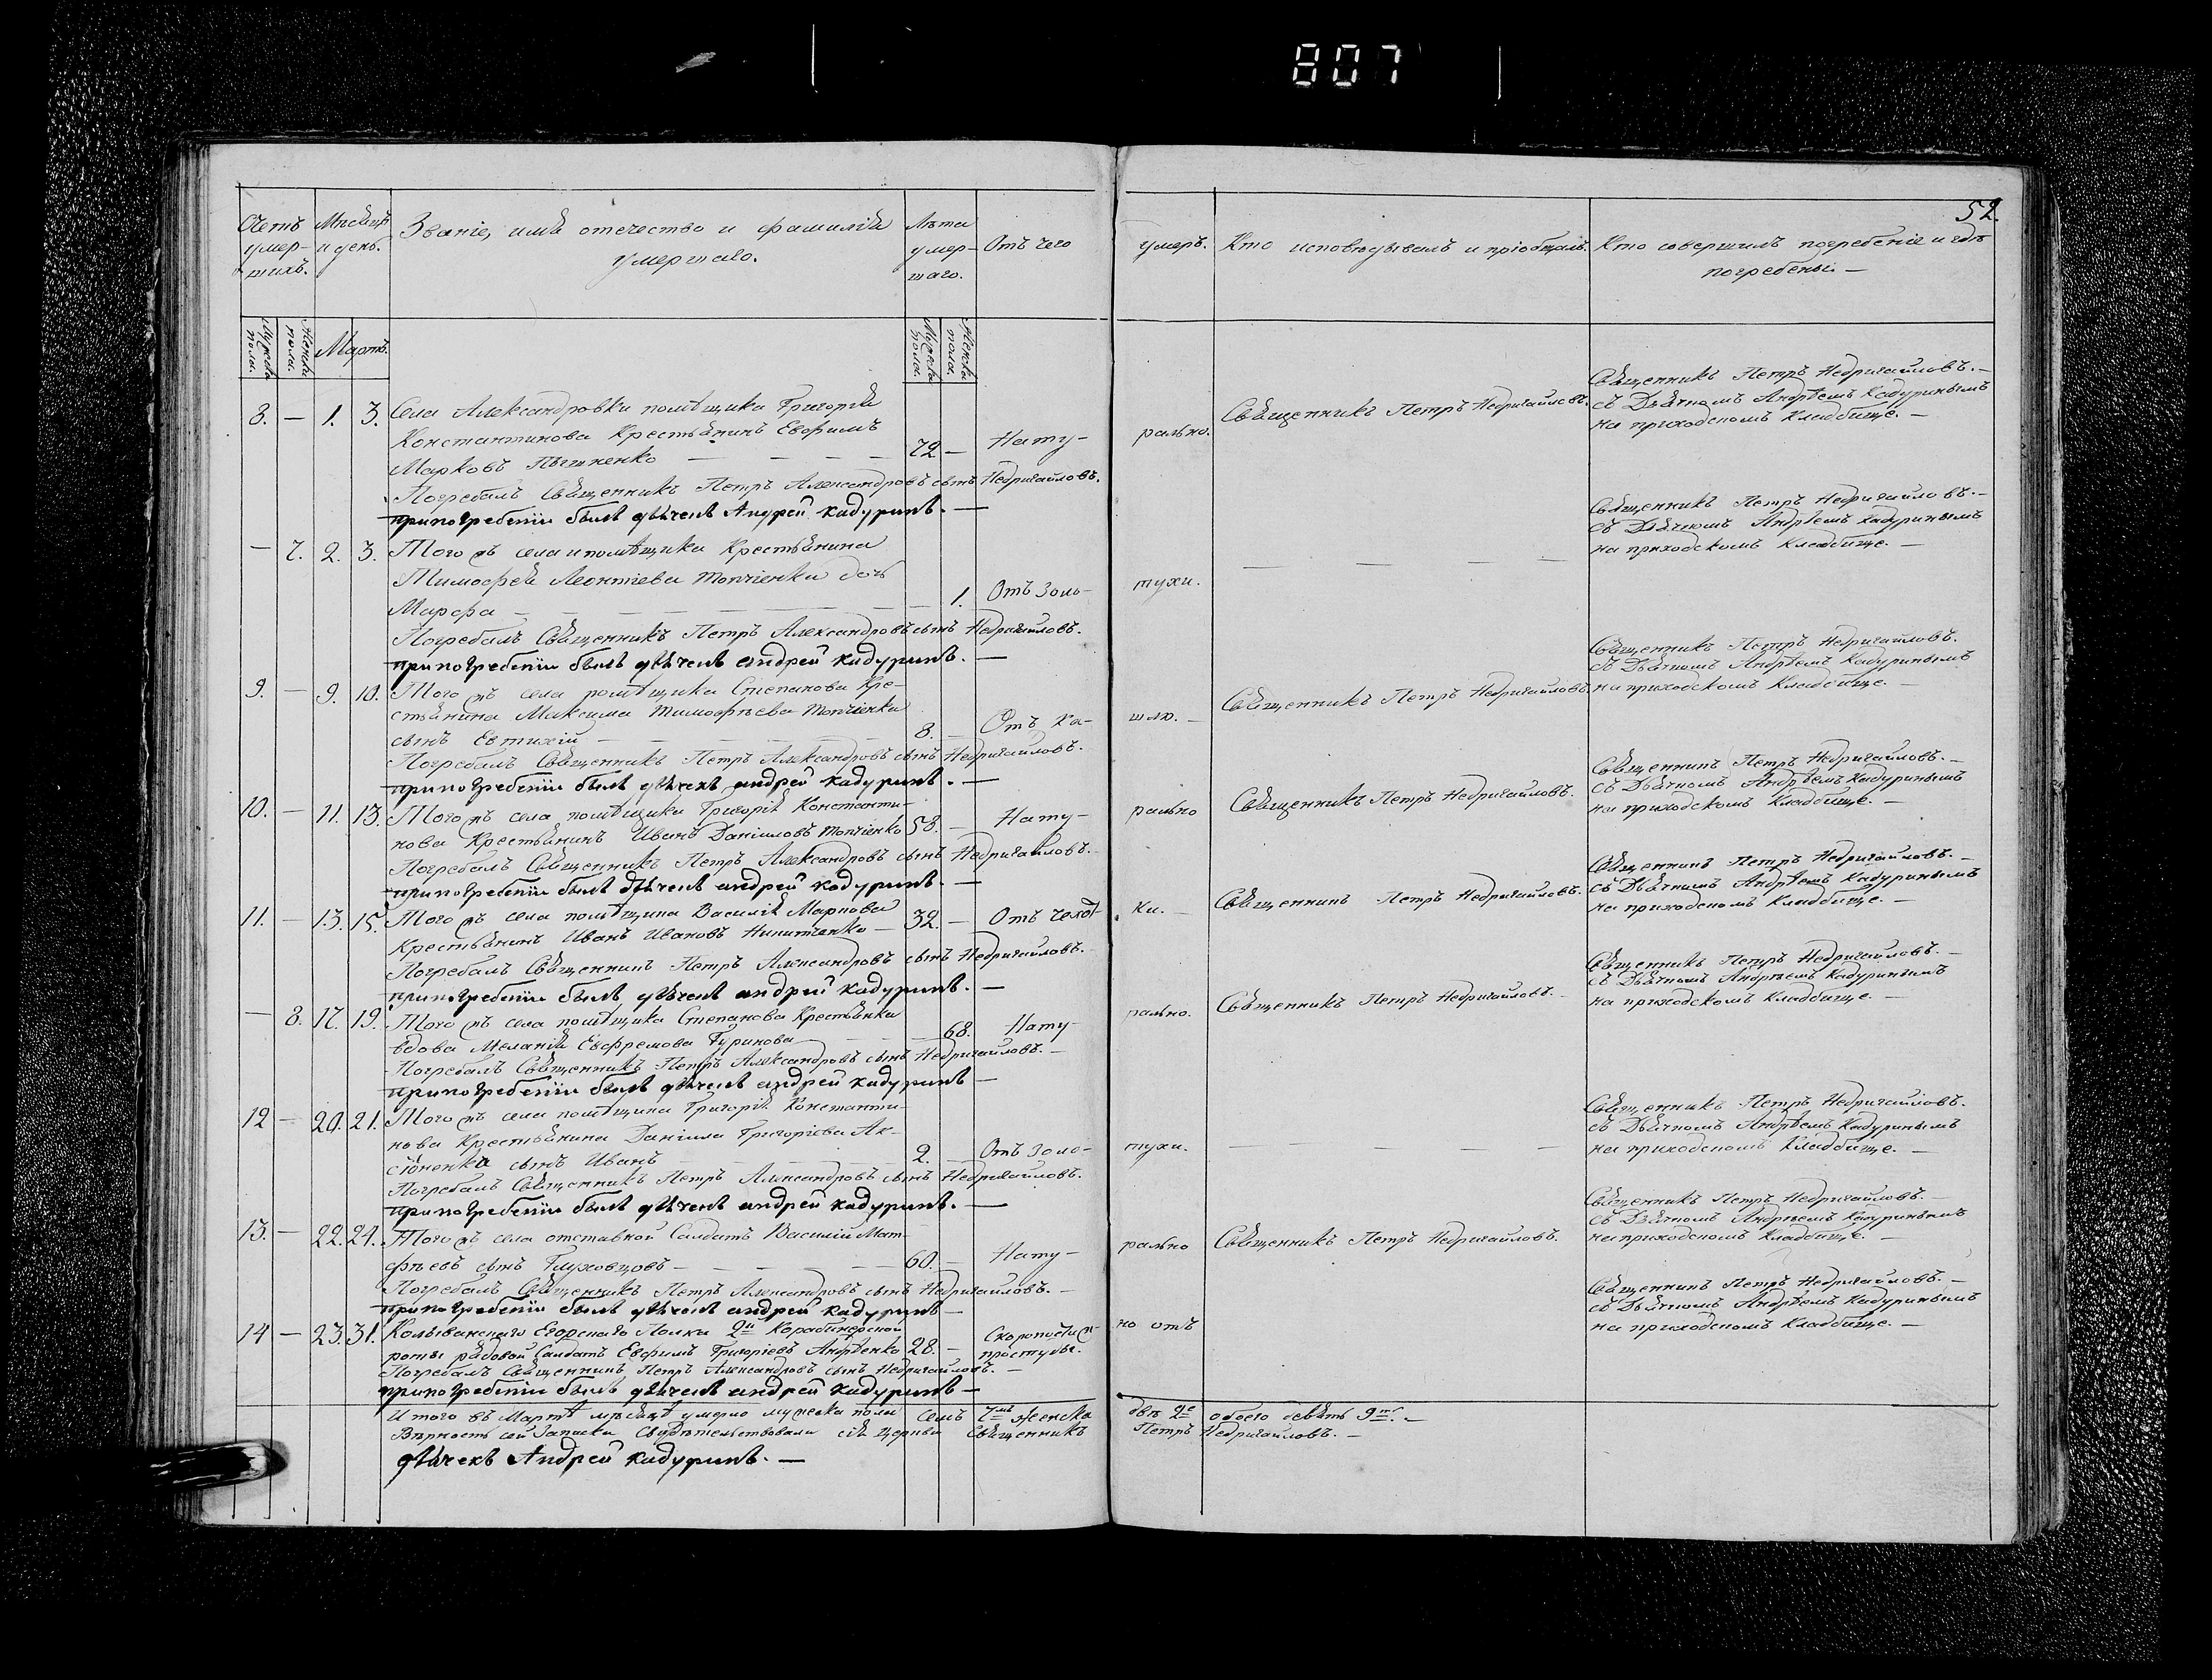 807
52.
Счетъ умер-шихъ.
Мѣсяцъ и день.
Званіе, имя отечество и фамилія умершаго.
Лѣта умер-шаго.
Отъ чего умеръ.
Кто исповѣдывалъ и пріобщалъ.
Кто совершилъ погребеніе и гдѣ погребены. —
Мужска пола.
Женска пола.
Мартъ.
Мужска пола.
Женска пола.
8. — 1. 3. Села Александровки помѣщика Григорія
Константинова Крестьянинъ Евфимъ
Марковъ — — — — 72. — Нату- рально.
Священникъ Петръ Недригайловъ.
Священникъ Петръ Недригайловъ. —
съ Дьячкомъ Андрѣемъ Кадуринымъ
на приходскомъ Кладбище. —
Погребалъ Священникъ Петръ Александровъ сынъ Недригайловъ.
при погребеніи былъ дьячекъ Андрей Кадуринъ. —
— 7. 2. 3. Того жъ села и помѣщика Крестьянина
Тимофея Леонтіева Топчіенка дочь
Марфа — — — — — 1. Отъ Золо- тухи.
— — — —
Священникъ Петръ Недригайловъ. —
съ Дьячкомъ Андрѣемъ Кадуринымъ
на приходскомъ Кладбище. —
Погребалъ Священникъ Петръ Александровъ сынъ Недригайловъ.
при погребеніи былъ дьячекъ андрей кадуринъ. —
9. — 9. 10. Того жъ села помѣщика Степанова Кре-
стьянина Максима Тимофѣева Топчіенка
сынъ Евтихій — — — — 8. — Отъ Ка- шлю. —
Священникъ Петръ Недригайловъ.
Священникъ Петръ Недригайловъ.
съ Дьячкомъ Андрѣемъ Кадуринымъ
на приходскомъ Кладбище. —
Погребалъ Священникъ Петръ Александровъ сынъ Недригайловъ.
при погребеніи былъ дьячекъ андрей кадуринъ. —
10. — 11. 13. Того жъ села помѣщика Григорія Константи-
нова Крестьянинъ Иванъ Даніиловъ Топчіенко 58. — Нату- рально
Священникъ Петръ Недригайловъ.
Священникъ Петръ Недригайловъ. —
съ Дьячкомъ Андрѣемъ Кадуринымъ
на приходскомъ Кладбище. —
Погребалъ Священникъ Петръ Александровъ сынъ Недригайловъ.
при погребеніи былъ дьячекъ андрей кадуринъ. —
11. — 13. 15. Того жъ села помѣщика Василія Маркова 32. — Отъ чахот- ки. —
Крестьянинъ Иванъ Ивановъ Никитченко —
Священникъ Петръ Недригайловъ.
Священникъ Петръ Недригайловъ. —
съ Дьячкомъ Андрѣемъ Кадуринымъ
на приходскомъ Кладбище. —
Погребалъ Священникъ Петръ Александровъ сынъ Недригайловъ. —
при погребеніи былъ дьячекъ андрей кадуринъ. —
— 8. 17. 19. Того жъ села помѣщика Степанова Крестьянка
вдова Меланія Евфремова Гуринова — 68. Нату- рально.
Священникъ Петръ Недригайловъ. —
Священникъ Петръ Недригайловъ. —
съ Дьячкомъ Андрѣемъ Кадуринымъ
на приходскомъ Кладбище. —
Погребалъ Священникъ Петръ Александровъ сынъ Недригайловъ. —
при погребеніи былъ дьячекъ андрей кадуринъ —
12 — 20. 21. Того жъ села помѣщика Григорія Константи-
нова Крестьянина Даніила Григоріева Ак-
сіоненка сынъ Иванъ — — — — 2. — Отъ Золо- тухи.
— — — —
Священникъ Петръ Недригайловъ.
съ Дьячкомъ Андрѣемъ Кадуринымъ
на приходскомъ Кладбище. —
Погребалъ Священникъ Петръ Александровъ сынъ Недригайловъ.
при погребеніи былъ дьячекъ андрей кадуринъ. —
13. — 22. 24. Того жъ села отставной Салдатъ Василій Мат-
фѣевъ сынъ Глуховцовъ — — — — 60. — Нату- рально
Священникъ Петръ Недригайловъ.
Священникъ Петръ Недригайловъ. —
съ Дьячкомъ Андрѣемъ Кадуринымъ
на приходскомъ Кладбище. —
Погребалъ Священникъ Петръ Александровъ сынъ Недригайловъ. —
при погребеніи былъ дьячекъ андрей кадуринъ —
14 — 23. 31. Колыванскаго Егерскаго Полка 2й Карабинерской
роты рядовой Салдатъ Евфимъ Григоріевъ Андрѣенко 28. — Скоропостиж- но отъ простуды.
Священникъ Петръ Недригайловъ. —
съ Дьячкомъ Андрѣемъ Кадуринымъ
на приходскомъ Кладбище. —
Погребалъ Священникъ Петръ Александровъ сынъ Недригайловъ. —
при погребеніи былъ дьячекъ андрей кадуринъ —
Итого въ Мартѣ мѣсяцѣ умерло мужска пола семъ 7мъ женска двѣ 2е обоего девять 9ть. —
Вѣрность сей Записки Свидѣтельствовали сія церкви Священникъ Петръ Недригайловъ. —
дьячекъ Андрей Кадуринъ. —